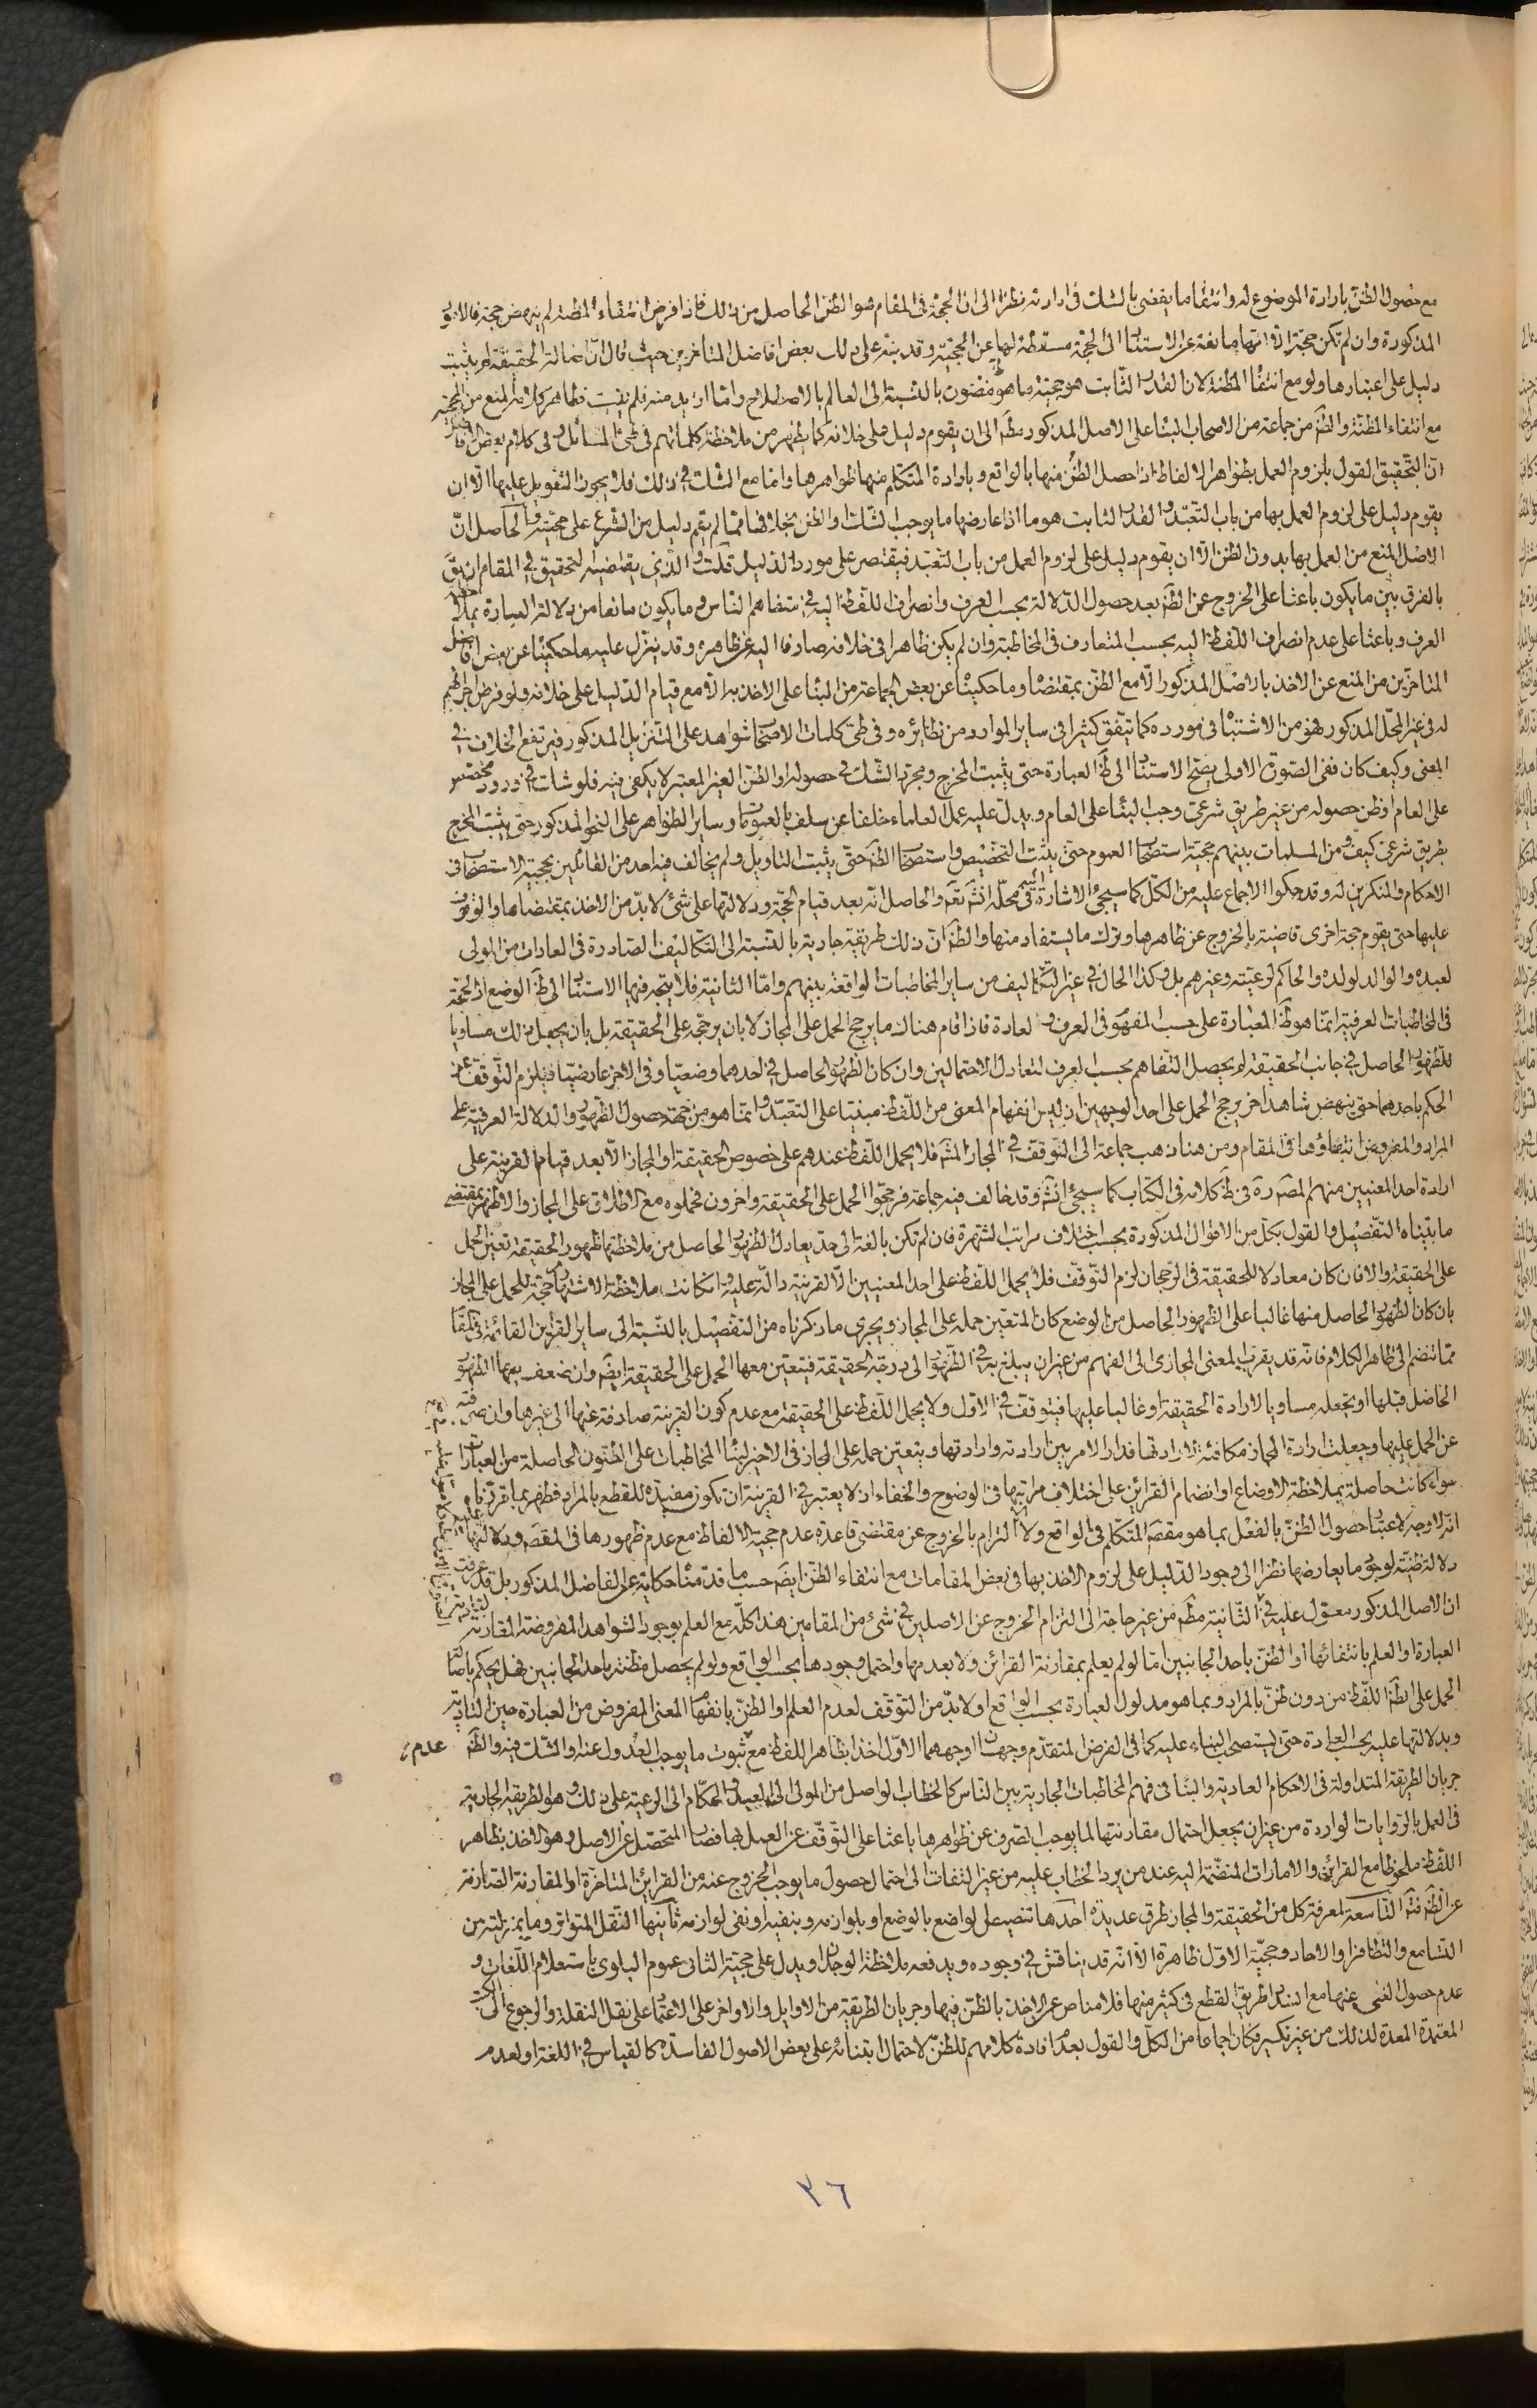 مع حصول الظن بارادة الموضوع له وانتفاء ما يقضى بالشك فى ارادته نظرا الى ان الحجة فى المقام هو الظن الحاصل من ذلك فاذا فرض انتفاء المظنة لم ينهض حجة فالامور
المذكورة وان لم تكن حجة الا انها مانعة عن الاستناد الى الحجة مسقطة لها عن الحجية وقد ينبه على ذلك بعض افاضل المتاخرين حيث قال ان اصالة الحقيقة لم يثبت
دليل على اعتبارها ولو مع انتفاء المظنة لان القدر الثابت هو حجية ما هو مظنون بالنسبة الى العالم بالاصطلاح واما ازيد منه فلم يثبت فظاهر كلامه المنع من الحجية
مع انتفاء المظنة والظ من جماعة من الاصحاب البناء على الاصل المذكور مط الى ان يقوم دليل على خلافه كما يظهر من ملاحظة كلماتهم فى طى المسائل وفى كلام بعض الافاضل
ان التحقيق القول بلزوم العمل بظواهر الالفاظ اذا حصل الظن منها بالواقع وبارادة المتكلم منها ظواهرها واما مع الشك فى ذلك فلا يجوز التعويل عليها الا ان
يقوم دليل على لزوم العمل بها من باب التعبد والقدر الثابت هو ما اذا عارضها ما يوجب الشك والظن بخلافها مما لم يقم دليل من الشرع على حجيته والحاصل ان
الاصل المنع من العمل بها بدون الظن الا ان يقوم دليل على لزوم العمل من باب التعبد فيقتصر على مورد الدليل قلت والذى يقتضيه التحقيق فى المقام ان يق
بالفرق بين ما يكون باعثا على الخروج عن الظ بعد حصول الدلالة بحسب العرف وانصراف اللفظ اليه فى متفاهم الناس وما يكون مانعا من دلالة العبارة بملاحظة
العرف وباعثا على عدم انصراف اللفظ اليه بحسب المتعارف فى المخاطبة وان لم يكن ظاهرا فى خلافه صارفا اليه عن ظاهره وقد ينزل عليه ما حكيناه عن بعض افاضل
المتاخرين من المنع عن الاخذ بالاصل المذكور الا مع الظن بمقتضاه وما حكيناه عن بعض الجماعة من البناء على الاخذ به الا مع قيام الدليل على خلافه ولو فرض اجرائهم
له فى غير المحل المذكور فهو من الاشتباه فى مورده كما يتفق كثيرا فى ساير الموارد من نظائره وفى طى كلمات الاصحاب شواهد على التنزيل المذكور فيرتفع الخلاف فى
المعنى وكيف كان ففى الصورة الاولى يصح الاستناد الى ظ العبارة حتى يثبت المخرج ومجرد الشك فى حصوله او الظن الغير المعتبر لا يكفى فيه فلو شك فى ورود مخصص
على العام او ظن حصوله من غير طريق شرعى وجب البناء على العام ويدل عليه عمل العلماء خلفا عن سلف بالعمومات وساير الظواهر على النحو المذكور حتى يثبت المخرج
بطريق شرعى كيف ومن المسلمات بينهم حجية استصحاب العموم حتى يثبت التخصيص واستصحاب الظ حتى يثبت التاويل ولم يخالف فيه احد من القائلين بحجية الاستصحاب فى
الاحكام والمنكرين له وقد حكوا الاجماع عليه من الكل كما سيجئ الاشارة اليه فى محله انش تعم والحاصل انه بعد قيام الحجة ودلالتها على شئ لا بد من الاخذ بمقتضاها والوقوف
عليها حتى يقوم حجة اخرى قاضية بالخروج عن ظاهرها وترك ما يستفاد منها والظ ان ذلك طريقة جارية بالنسبة الى التكاليف الصادرة فى العادات من المولى
لعبده والوالد لولده والحاكم لرعيته وغيرهم بل وكذا الحال فى غير التكاليف من ساير المخاطبات الواقعة بينهم واما الثانية فلا يتجه فيها الاستناد الى ظ الوضع اذ الحجة
فى المخاطبات العرفية انما هو ظ العبارة على حسب المفهوم فى العرف والعادة فاذا قام هناك ما يرجح الحمل على المجاز لا بان يرجحه على الحقيقة بل بان يجعل ذلك مساويا
للظهور الحاصل فى جانب الحقيقة لم يحصل التفاهم بحسب العرف لتعادل الاحتمالين وان كان الظهور الحاصل فى احدهما وضعيا وفى الاخر عارضيا فيلزم التوقف عن
الحكم باحدهما حتى ينهض شاهد اخر يرجح الحمل على احد الوجهين اذ ليس انفهام المعنى من اللفظ مبنيا على التعبد وانما هو من جهة حصول الظهور والدلالة العرفية على
المراد والمفروض انتفاؤها فى المقام ومن هنا ذهب جماعة الى التوقف فى المجاز المشه فلا يحمل اللفظ عندهم على خصوص الحقيقة او المجاز الا بعد قيام القرينة على
ارادة احد المعنيين منهم المص ره فى ظ كلامه فى الكتاب كما سيجئ انش وقد خالف فيه جماعة فرجحوا الحمل على الحقيقة واخرون فحملوه مع الاطلاق على المجاز والاظهر بمقتضى
ما بيناه التفصيل والقول بكل من الاقوال المذكورة بحسب اختلاف مراتب الشهرة فان لم تكن بالغة الى حد يعادل الظهور الحاصل من ملاحظتها ظهور الحقيقة تعين الحمل
على الحقيقة والا فان كان معادلا للحقيقة فى الرجحان لزم التوقف فلا يحمل اللفظ على احد المعنيين الا لقرينة دالة عليه وان كانت ملاحظة الاشتهار مرجحة للحمل على المجاز
بان كان الظهور الحاصل منها غالبا على الظهور الحاصل من الوضع كان المتعين حمله على المجاز ويجرى ما ذكرناه من التفصيل بالنسبة الى ساير القرائن القائمة فى المقام
مما تنضم الى ظاهر الكلام فانه قد يقرب المعنى المجازى الى الفهم من غير ان يبلغ به فى الظهور الى درجة الحقيقة فيتعين معها الحمل على الحقيقة ايضم وان ضعف بها الظهور
الحاصل قبلها او يجعله مساويا لارادة الحقيقة او غالبا عليها فيتوقف فى الاول ولا يحمل اللفظ على الحقيقة مع عدم كون القرينة صارفة عنها الى غيرها وان صرفته
عن الحمل عليها وجعلت ارادة المجاز مكافئة لارادتها فدار الامر بين ارادته وارادتها ويتعين حمله على المجاز فى الاخير لبناء المخاطبات على الظنون الحاصلة من العبارات
سواء كانت حاصلة بملاحظة الاوضاع او انضمام القرائن على اختلاف مراتبها فى الوضوح والخفاء اذ لا يعتبر فى القرينة ان تكون مفيدة للقطع بالمراد فظهر بما قررناه
انه لا وجه لاعتبار حصول الظن بالفعل بما هو مقصد المتكلم فى الواقع ولا التزام بالخروج عن مقتضى قاعدة عدم حجية الالفاظ مع عدم ظهورها فى المقصد ودلالتها عليه
دلالة ظنية لوجود ما يعارضها نظرا الى وجود الدليل على لزوم الاخذ بها فى بعض المقامات مع انتفاء الظن ايضم حسب ما قدمنا حكايته عن الفاضل المذكور بل قد عرفت
ان الاصل المذكور معول عليه فى الثانية مط من غير حاجة الى التزام الخروج عن الاصلين فى شئ من المقامين هذا كله مع العلم بوجود الشواهد المفروضة المقارنة
العبارة او العلم بانتفائها او الظن باحد الجانبين اما لو لم يعلم بمقارنة القرائن ولا بعدمها واحتمل وجودها بحسب الواقع ولو لم يحصل مظنة باحد الجانبين فهل يحكم باصالة
الحمل على ظ اللفظ من دون ظن بالمراد وبما هو مدلول العبارة بحسب الواقع او لا بد من التوقف لعدم العلم او الظن بانفهام المعنى المفروض من العبارة حين التادية
وبدلالتها عليه بحسب العادة حتى يستصحب البناء عليه كما فى الفرض المتقدم وجهان اوجههما الاول اخذا بظاهر اللفظ مع ثبوت ما يوجب العدول عنه والشك فيه والظ عدم
جريان الطريقة المتداولة فى الاحكام العادية والبناء فى فهم المخاطبات الجارية بين الناس كالخطاب الواصل من المولى الى العبيد والحكام الى الرعية على ذلك وهو الطريقة الجارية
فى العمل بالروايات الواردة من غير ان يجعل احتمال مقارنتها لما يوجب الصرف عن ظواهرها باعثا على التوقف عن العمل بها فصار المتحصل ان الاصل هو الاخذ بظاهر
اللفظ ملحوظا مع القرائن والامارات المنضمة اليه عند من يرد الخطاب عليه من غير التفات الى احتمال حصول ما يوجب الخروج عنه من القرائن المتاخرة او المقارنة الصارفة
عن الظ فتم التاسعة لمعرفة كل من الحقيقة والمجاز طرق عديدة احدها تنصيص الواضع بالوضع او بلوازمه وبنفيه او نفى لوازمه ثانيها النقل المتواتر وما بمنزلته من
التسامع والتظافر او الاحاد وحجية الاول ظاهرة الا انه قد يناقش فى وجوده ويدفعه ملاحظة الوجدان ويدل على حجية الثانى عموم البلوى باستعلام اللغات و
عدم حصول الغنى عنها مع انسداد طريق القطع فى كثير منها فلا مناص عن الاخذ بالظن فيها وجريان الطريقة من الاوايل والاواخر على الاعتماد على نقل النقلة والرجوع الى الكتب
المعتمدة المعدة لذلك من غير نكير فكان اجماعا من الكل والقول بعدم افادة كلامهم للظن لاحتمال ابتنائه على بعض الاصول الفاسدة كالقياس فى اللغة او لعدم
٣٦